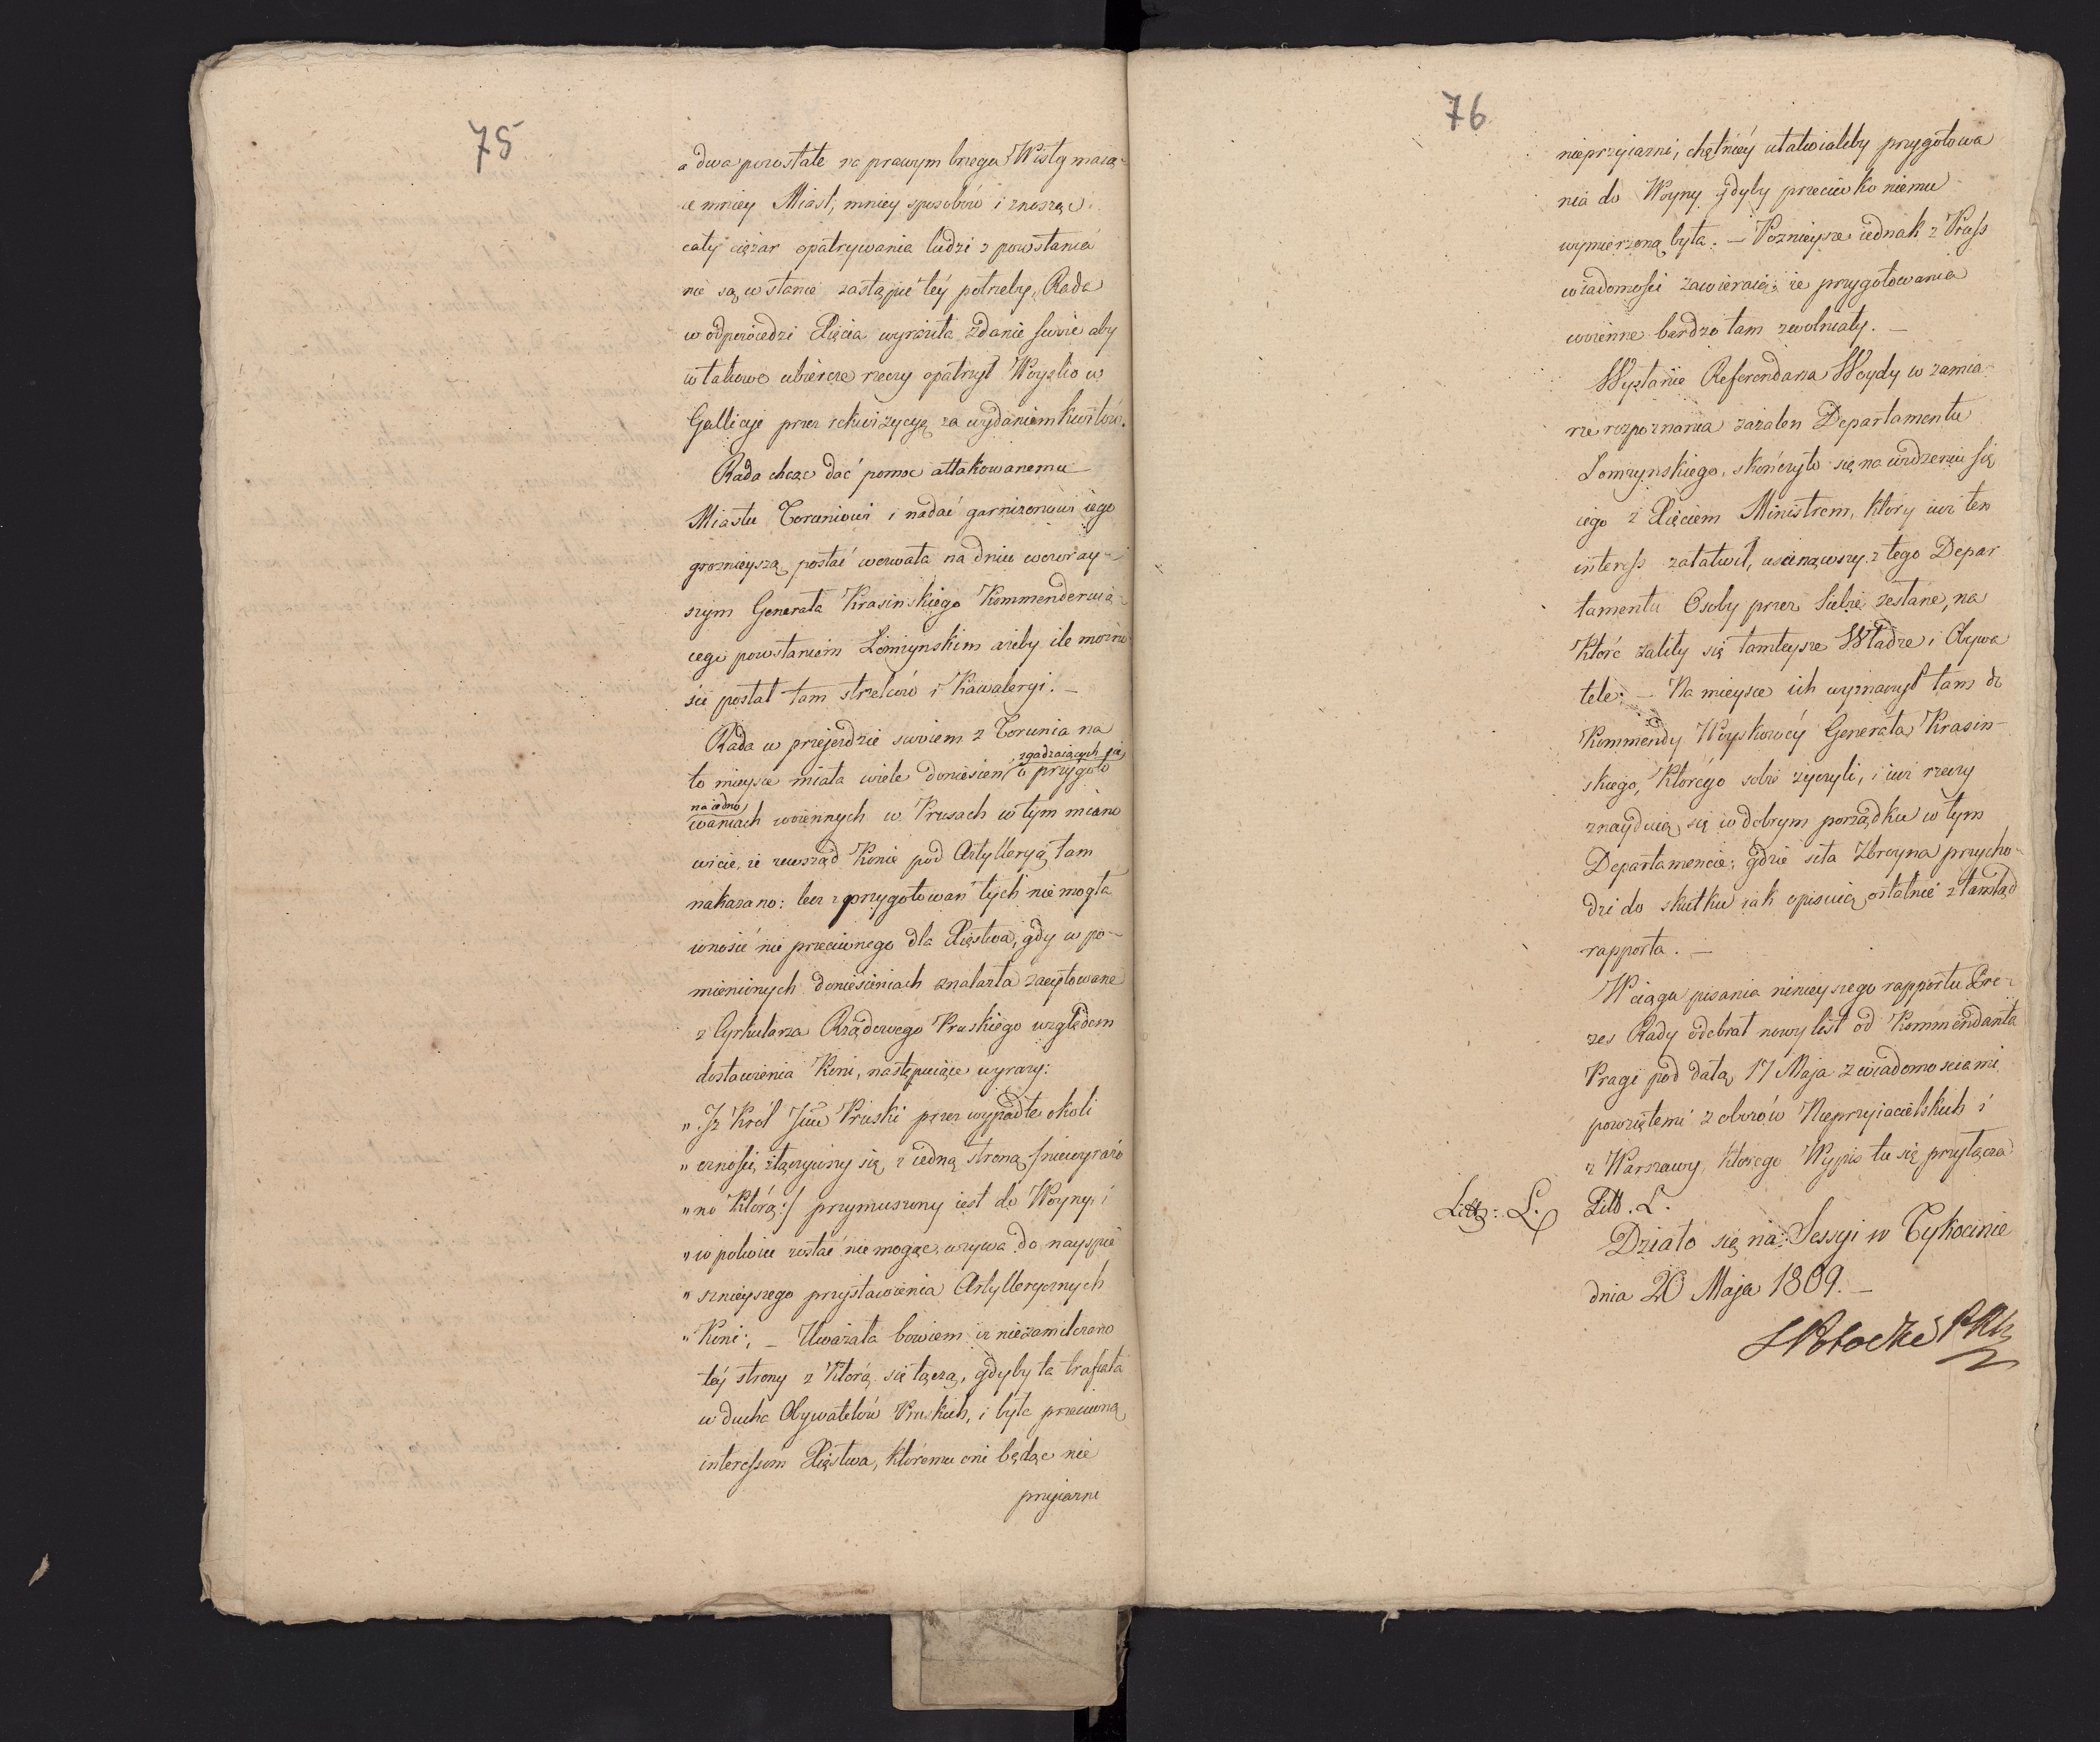 75
a dwa pozostałe na prawym brzegu Wisły maią-
ce mniey Miast, mniey sposobów i znosząc
cały ciężar opatrywania ludzi z powstania
nie są w stanie zastąpić téy potrzeby, Rada
w odpowiedzi Xięcia wyraziła zdanie swoie aby
w takowe ubiorcze rzeczy opatrzył Woysko w
Gallicyi przez rekwizycyą za wydaniem kwitów.
Rada chcąc dać pomoc attakowanemu
Miastu Toruniowi i nadać garnizonowi iego
groznieyszą postać wezwała na dniu wczoray-
szym Generała Krasinskiego Kommenderuią-
cego powstaniem Łomżynskim ażeby ile możno
ści posłał tam strzelców i Kawaleryi. —
Rada w przejeździe swoiem z Torunia na
to mieysce miała wiele doniesien zgadzaiących się
na iedno o przygoto
waniach woiennych w Prusach w tym miano
wicie, że zewsząd Konie pod Artylleryą tam
nakazano: lecz z przygotowań tych nie mogła
wnosić nic przeciwnego dla Xięstwa, gdy w po-
mienionych doniesieniach znalazła zacytowane
z Cyrkularza Rządowego Pruskiego względem
dostawienia Koni, następuiące wyrazy:
„ Iż Król Jmć Pruski przez wypadłe okoli
„ czności, złączywszy się z iedną stroną /:niewyrażo
„ no Którą:/ przymuszony iest do Woyny, i
„ w pokoiu zostać nie mogąc, wzywa do nayspie
„ sznieyszego przystawienia Artyllerycznych
„ Koni; — Uważała bowiem iż niezamilczano
téy strony z Którą się łączą, gdyby ta trafiała
w ducha Obywatelów Pruskich, i była przeciwną
interessom Xięstwa, któremu oni będąc nie
przyiazni
76
nieprzyiazni, chętniéy ułatwialiby przygotowa
nia do Woyny gdyby przeciwko niemu
wymierzoną była. — Poznieysze iednak z Pruss
wiadomości zawieraią; że przygotowania
woienne bardzo tam zwolniały. —
Wysłanie Referendarza Woydy w zamia
rze rozpoznania zażalen Departamentu
Łomżynskiego, skończyło się na widzeniu się
iego z Xięciem Ministrem, który iuż ten
interess załatwił, usunąwszy z tego Depar
tamentu Osoby przez Siebie zesłane, na
Które żaliły się tamteysze Władze i Obywa
tele; — Na mieysce ich wyznaczył tam do
Kommendy Woyskowéy Generała Krasin-
skiego, Którégo sobie życzyli, i iuż rzeczy
znayduią się w dobrym porządku w tym
Departamencie; gdzie siła Zbroyna przycho-
dzi do skutku iak opisuią ostatnie z tamtąd
rapporta. —
W ciągu pisania ninieyszego rapportu Pre-
zes Rady odebrał nowy list od Kommendanta
Pragi pod datą 17 Maja z wiadomosciami
powziętemi z obozów Nieprzyiacielskich i
z Warszawy, którego Wypis tu się przyłącza
Litt: L. Litt. L.
Działo się na Sessyi w Tykocinie
dnia 20 Maja 1809. —
S Potocki P R